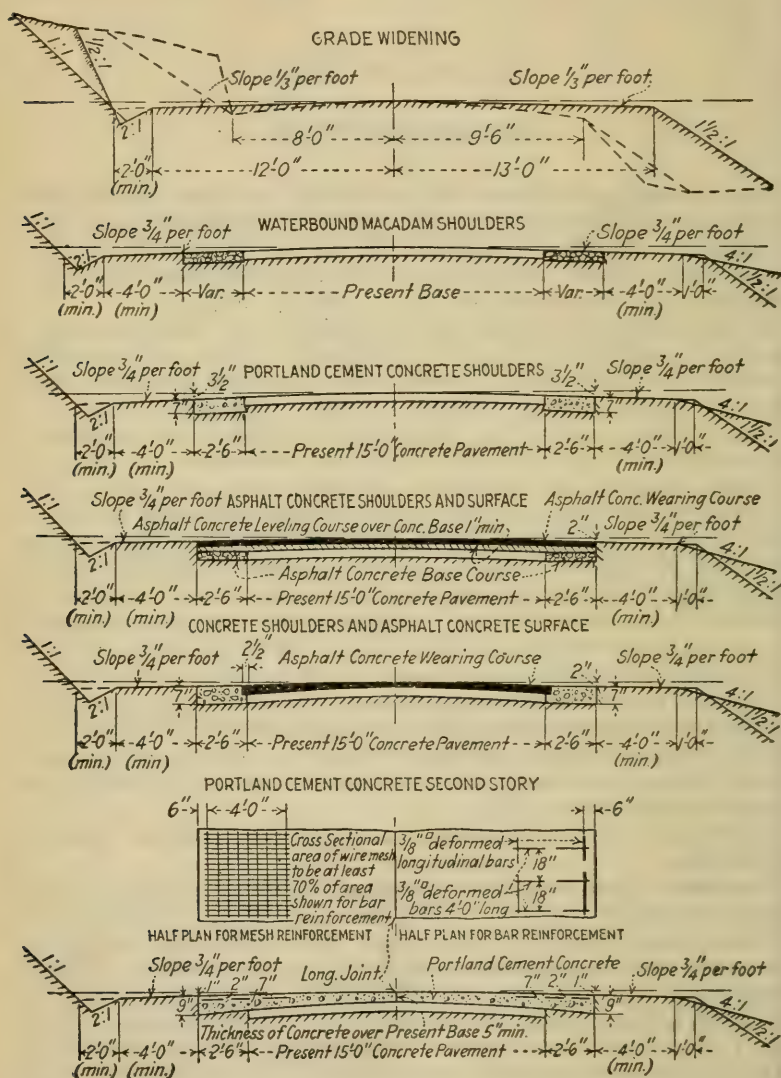 GRADE WIDENING
1:1
1/2:1
Slope 1/3" per foot
Slope 1/3" per foot
2:1
1 1/2:1
8'-0"
9'-6"
2'-0"
(min.)
12'-0"
13'-0"
WATERBOUND MACADAM SHOULDERS
1:1
Slope 3/4" per foot
Slope 3/4" per foot
2:1
4:1
1 1/2:1
2'-0" 4'-0" Var. Present Base Var. 4'-0" 1'-0"
(min.) (min) (min)
PORTLAND CEMENT CONCRETE SHOULDERS
1:1
Slope 3/4" per foot
3 1/2"
3 1/2"
Slope 3/4" per foot
7"
7"
2:1
4:1
1 1/2:1
2'-0" 4'-0" 2'-6" Present 15'-0" Concrete Pavement 2'-6" 4'-0" 1'-0"
(min.) (min.) (min)
ASPHALT CONCRETE SHOULDERS AND SURFACE
1:1
Slope 3/4" per foot
Asphalt Conc. Wearing Course
Asphalt Concrete Leveling Course over Conc. Base 1" min.
2"
Slope 3/4" per foot
2:1
4:1
1 1/2:1
Asphalt Concrete Base Course
2'-0" 4'-0" 2'-6" Present 15'-0" Concrete Pavement 2'-6" 4'-0" 1'-0"
(min) (min) (min)
CONCRETE SHOULDERS AND ASPHALT CONCRETE SURFACE
1:1
Slope 3/4" per foot
2 1/2"
Asphalt Concrete Wearing Course
2"
Slope 3/4" per foot
7"
7"
2:1
4:1
1 1/2:1
2'-0" 4'-0" 2'-6" Present 15'-0" Concrete Pavement 2'-6" 4'-0" 1'-0"
(min.) (min) (min)
PORTLAND CEMENT CONCRETE SECOND STORY
6" 4'-0" 6"
Cross Sectional
area of wire mesh
to be at least
70% of area
shown for bar
reinforcement
3/8"□ deformed
longitudinal bars
18"
3/8"□ deformed
bars 4'-0" long
18"
HALF PLAN FOR MESH REINFORCEMENT
HALF PLAN FOR BAR REINFORCEMENT
1:1
Slope 3/4" per foot
Long. Joint
Portland Cement Concrete
Slope 3/4" per foot
1" 2" 7"
7" 2" 1"
9"
9"
2:1
4:1
1 1/2:1
Thickness of Concrete over Present Base 5" min.
2'-0" 4'-0" 2'-6" Present 15'-0" Concrete Pavement 2'-6" 4'-0" 1'-0"
(min.) (min) (min)